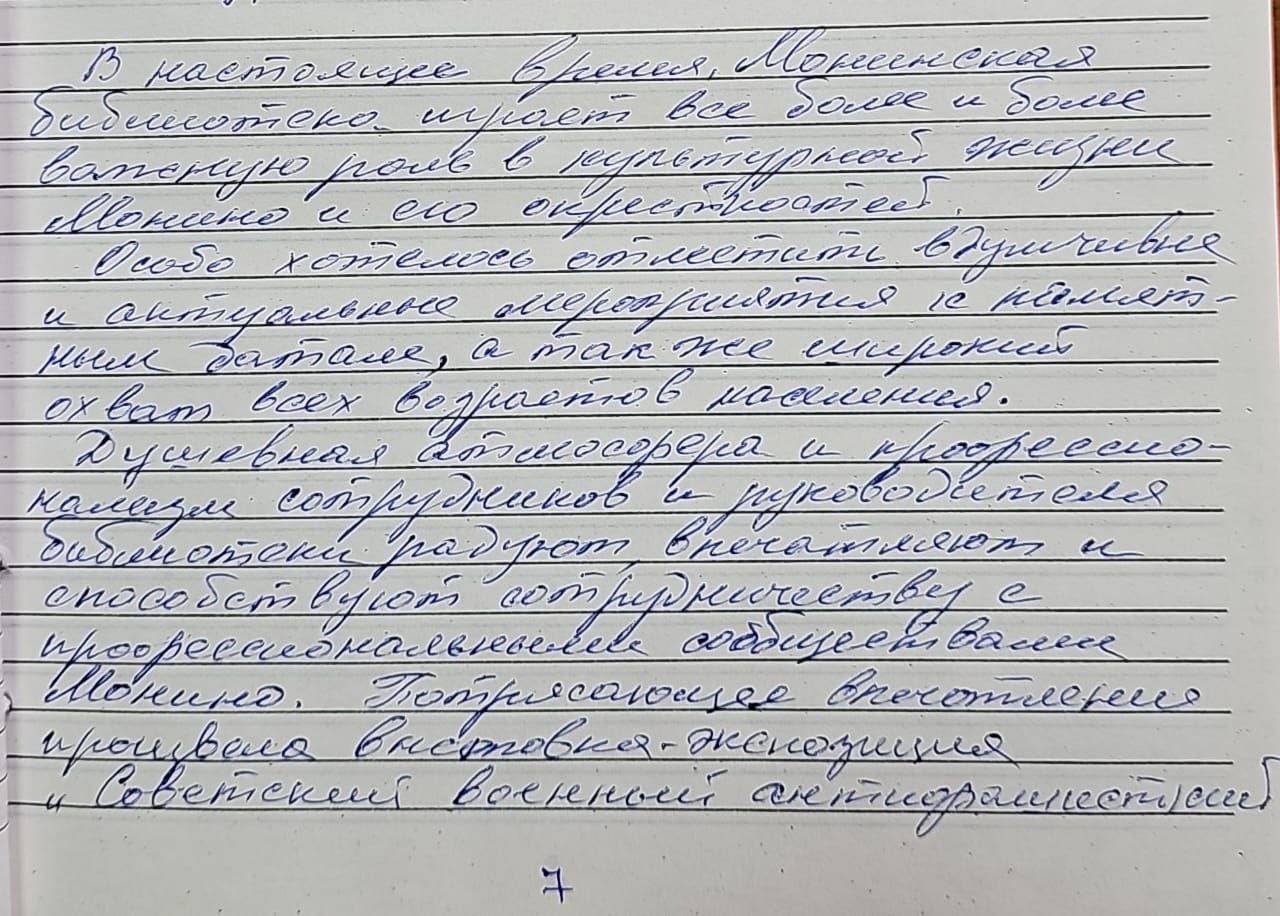 В настоящее время, Монинская
библиотека играет все более и более
важную роль в культурной жизни
Монино и его окрестностей.
Особо хотелось отметить вдумчивые
и актуальные мероприятия к памят-
ным датам, а так же широкий
охват всех возрастов населения.
Душевная атмосфера и профессио-
нализм сотрудников и руководителя
библиотеки радуют, впечатляют и
способствуют сотрудничеству с
профессиональными сообществами
Монино. Потрясающее впечатление
произвела выставка-экспозиция
"Советский военный антифашистский
7